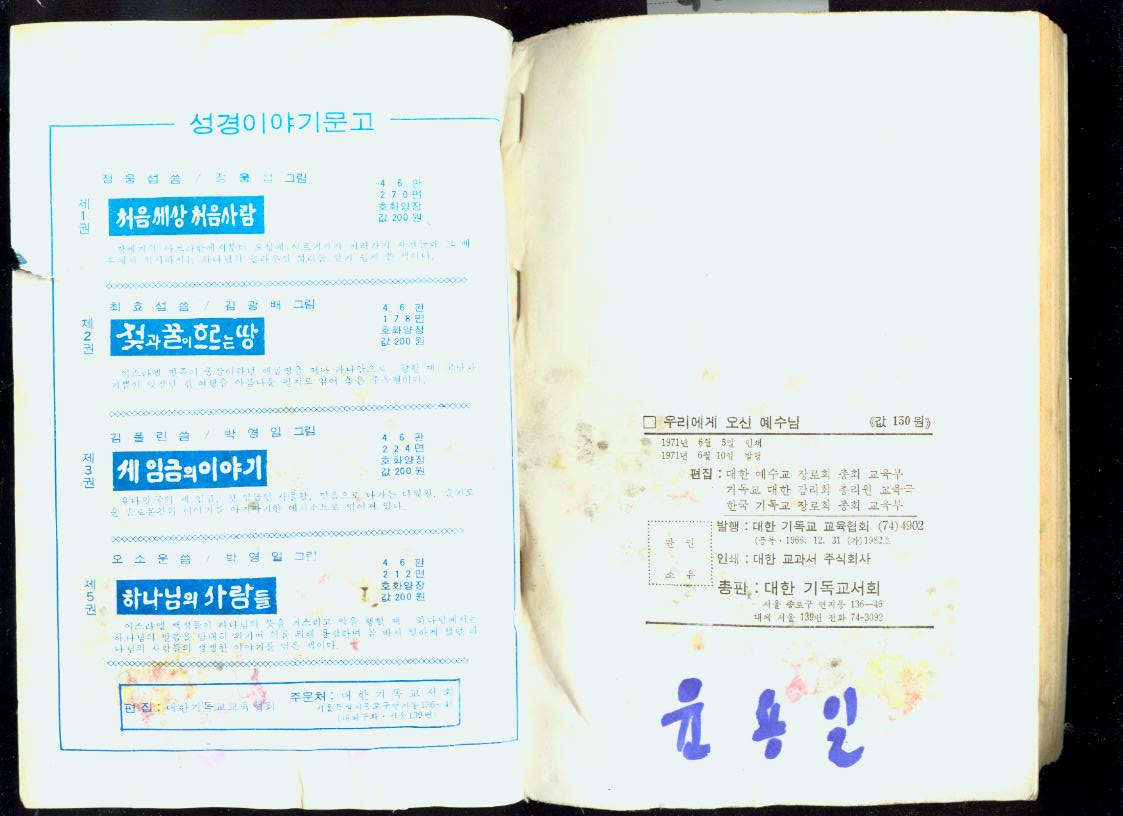 성경이야기문고
정웅섭 씀 / 정웅섭 그림
제1권
처음세상 처음사람
46판
270면
호화양장
값 200원
최효섭 씀 / 김광배 그림
제2권
젖과 꿀이 흐르는 땅
46판
178면
호화양장
값 200원
이스라엘 민족이
김폴린 씀 / 박영일 그림
제3권
세 임금의 이야기
46판
224면
호화양장
값 200원
유다왕국의 세 임금, 첫 임금인 사울왕, 믿음으로 나가는 다윗왕, 슬기로
운 솔로몬왕의 이야기를 아기자기한 에피소드로 엮어져 있다.
오소운 씀 / 박영일 그림
제5권
하나님의 사람들
46판
212면
호화양장
값 200원
이스라엘 백성들이 하나님의 뜻을 거스리고 악을 행할 때 하나님께서는
하나님의 말씀을 담대히 외치며 의를 위해 용감하며 몸 바쳐 일하게 했던 하
나님의 사람들의 생생한 이야기를 엮은 책이다.
편집 : 대한기독교교육협회
주문처 : 대한기독교서회
서울특별시종로구연지동136—46
(대체구좌·서울139번)
□ 우리에게 오신 예수님 《값 150원》
1971년 6월 5일 인쇄
1971년 6월 10일 발행
편집 : 대한 예수교 장로회 총회 교육부
기독교 대한 감리회 총리원 교육국
한국 기독교 장로회 총회 교육부
판권
소유
발행 : 대한 기독교 교육협회 (74)4902
(등록·1966. 12. 31 (가)1982호
인쇄 : 대한 교과서 주식회사
총판 : 대한 기독교서회
서울 종로구 연지동 136—46
대체 서울 139번 전화 74-3092
윤용일